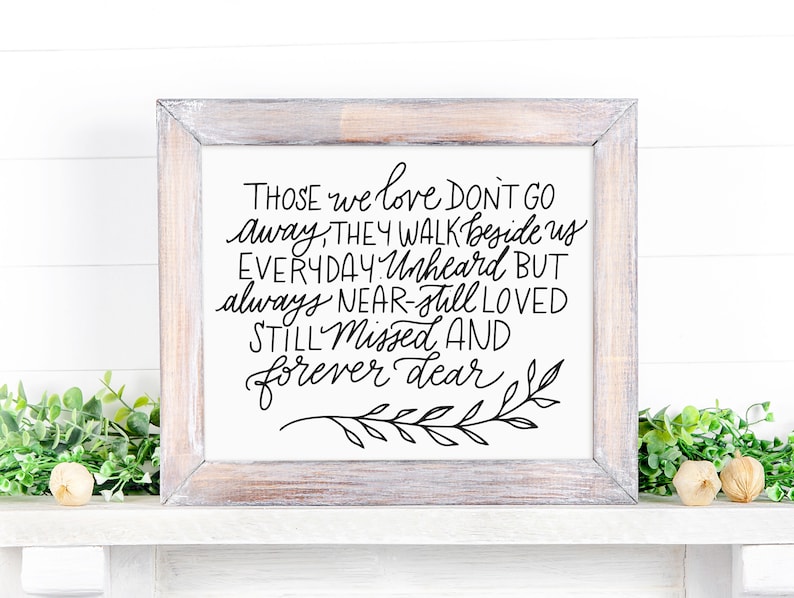 THOSE we love DON'T GO
away, THEY WALK beside us
EVERYDAY. Unheard BUT
always NEAR-still LOVED
STILL Missed AND
forever dear